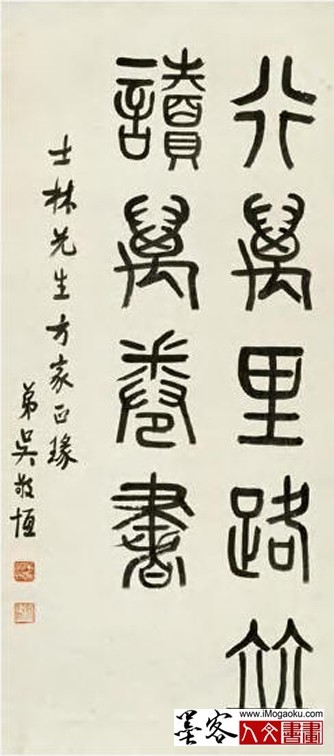 行萬里路竝
讀萬卷書
士林先生方家正瑑
弟吳敬恆
www.iMogaoku.com
墨客人文書畫